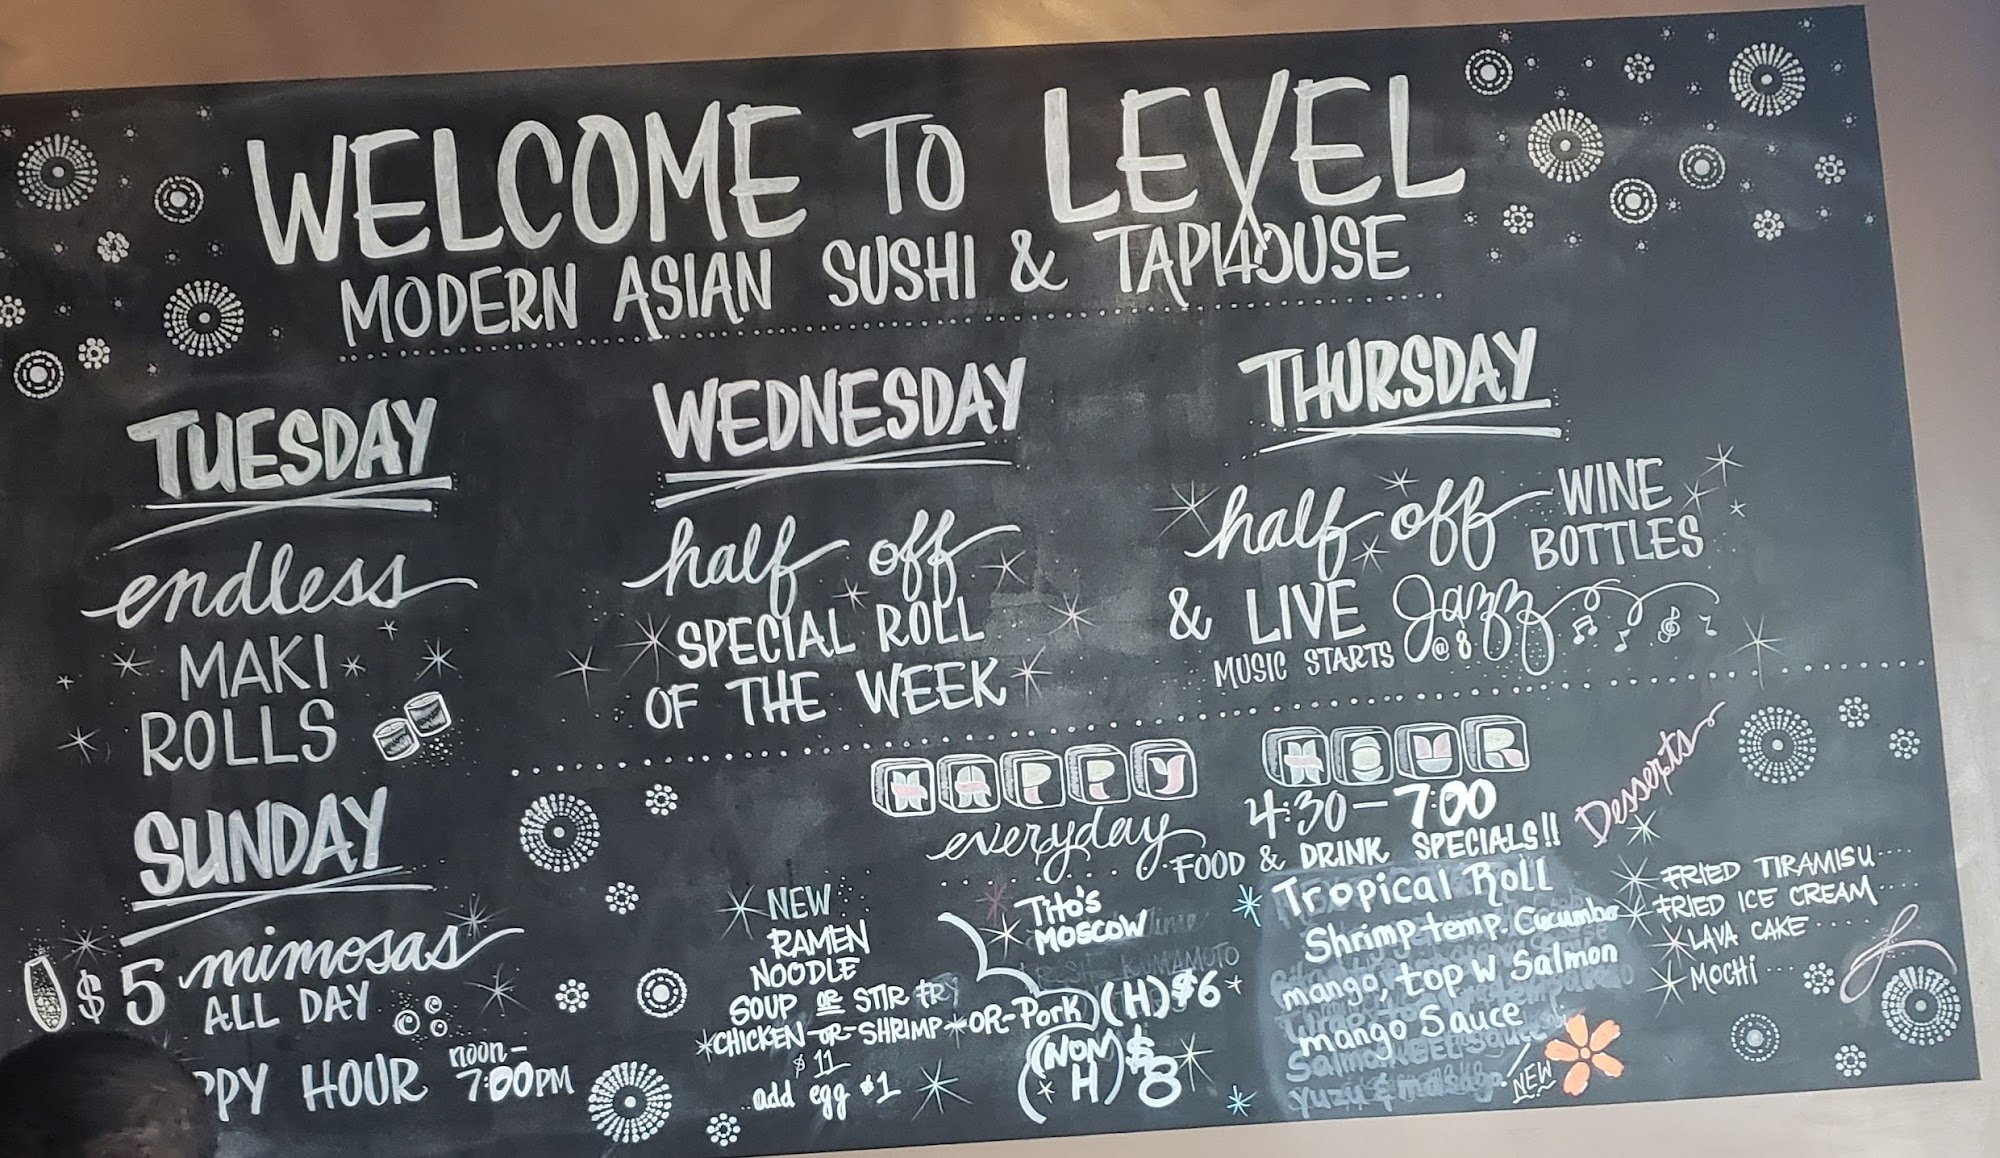 WELCOME TO LEVEL
MODERN ASIAN SUSHI & TAPHOUSE
TUESDAY
endless
MAKI
ROLLS
WEDNESDAY
half off
SPECIAL ROLL
OF THE WEEK
THURSDAY
half off WINE
BOTTLES
& LIVE Jazz
MUSIC STARTS @ 8
SUNDAY
$5 mimosas
ALL DAY
PPY HOUR noon-
7:00PM
HAPPY HOUR
everyday 4:30-7:00
FOOD & DRINK SPECIALS!!
NEW
RAMEN
NOODLE
SOUP OR STIR FRY
CHICKEN-OR-SHRIMP-OR-PORK
$11
add egg $1
TITO'S
MOSCOW
(H) $6
(NON
H) $8
Tropical Roll
Shrimp temp. Cucumber
mango, top W Salmon
mango Sauce
NEW
Desserts
FRIED TIRAMISU....
FRIED ICE CREAM....
LAVA CAKE...
MOCHI...